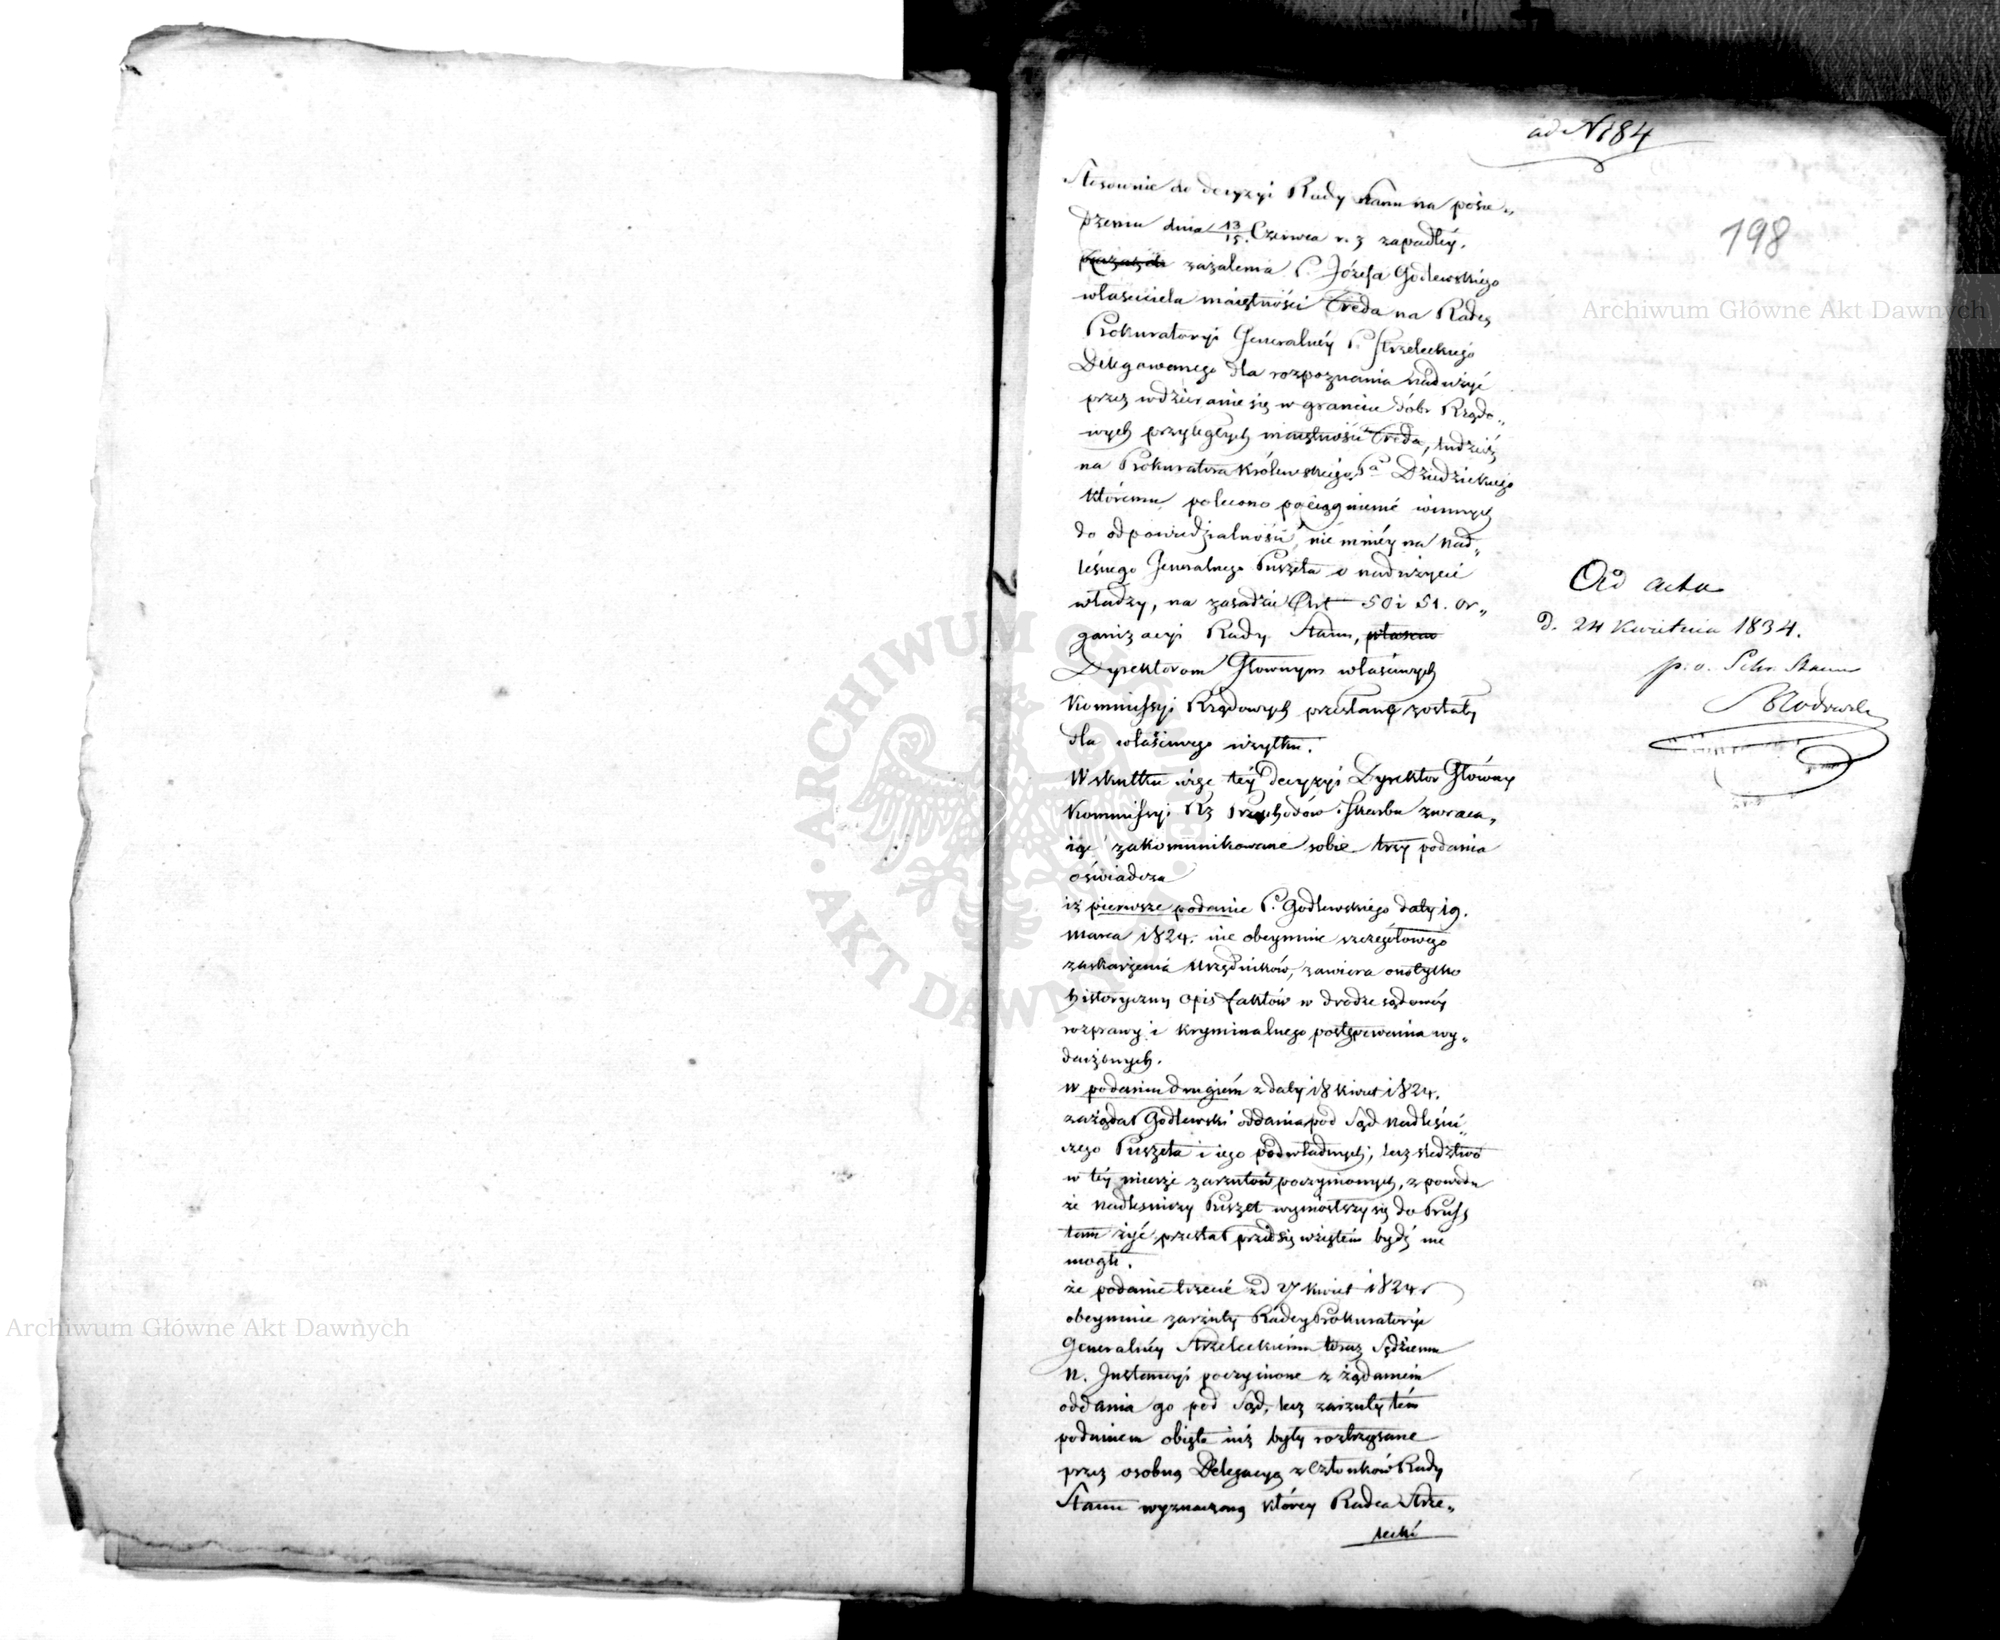 ad N 184
198
Stosownie do decyzyi Rady Stanu na posie„
dzeniu dnia 13/15. Czerwca r. z zapadłéy.
zażalenia P. Józefa Godlewskiego
właściciela maiętności Treda na Radcę
Prokuratoryi Generalnéy P. Strzeleckiego
Delegowanego dla rozpoznania nadużyć
przez wdzieranie się w granice dóbr Rządo„
wych przyległych maiętności Treda, tudzież
na Prokuratora Królewskiego Pa Dziedzickiego
któremu polecono pociągnienié winnych
do odpowiedzialności, nie mniéy na Nad„
leśnego Jeneralnego Puszeta o nadużycié
władzy, na zasadzie Art 50 i 51. Or„
ganizacyi Rady Stanu,
Dyrektorom Głownym właściwych
Kommissyi Rządowych przesłane zostały
dla właściwego użytku.
W skutku więc téy decyzyi Dyrektor Główny
Kommissyi Rz Przychodów i Skarbu zwraca„
iąc zakommunikowane sobie trzy podania
oświadcza
iż pierwsze podanie P. Godlewskiego daty 19.
Marca 1824. nie obeymuie szczegółowego
zaskarżenia Urzędników, zawiera ono tylko
historyczny opis faktów w drodze sądowéy
rozprawy i kryminalnego postępowania wy„
darzonych.
w podaniu drugiém z daty 18 Kwiet 1824.
zażądał Godlewski oddania pod Sąd Nadleśni„
czego Puszeta i iego podwładnych, lecz śledztwo
w téy mierze zarzutów poczynionych, z powodu
że Nadleśniczy Puszet wyniosłszy się do Pruss
tam żyć przestał przedsięwziętém bydź nie
mogło.
że podanie trzecié z d 27 Kwiet 1824 r
obeymuie zarzuty Radcy Prokuratoryi
Generalnéy Strzeleckiemu teraz Sędziemu
N. Instancyi poczynione z żądaniem
oddania go pod Sąd, lecz zarzuty tém
podaniem obięte iuż były roztrząsane
przez osobną Delegacyą z Członków Rady
Stanu wyznaczoną któréy Radca Strze„
lecki
Ad acta
d. 24 Kwietnia 1834.
p. o. Sekr. Stanu
Archiwum Główne Akt Dawnych
Archiwum Główne Akt Dawnych
ARCHIWUM GŁÓWNE AKT DAWNYCH